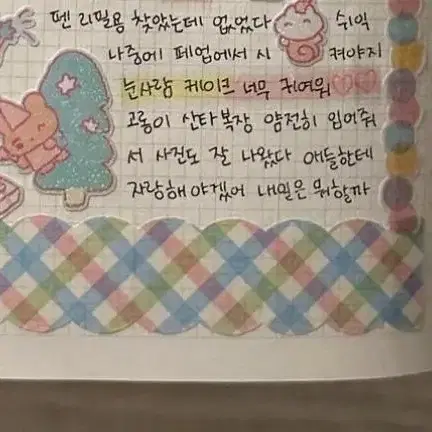 펜 리필용 찾았는데 없었다 쉬익
나중에 페업에서 시켜야지
눈사람 케이크 너무 귀여워♡♡
고롱이 산타복장 얌전히 입어줘
서 사진도 잘 나왔다 애들한테
자랑해야겠어 내일은 뭐할까